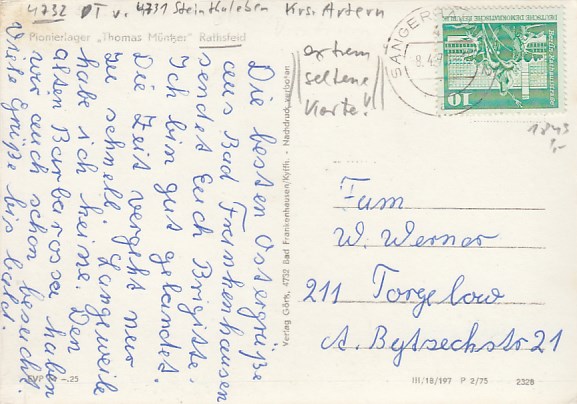 4732 OT v. 4731 Steinthaleben Krs. Artern
Pionierlager „Thomas Müntzer" Rathsfeld
extrem
seltene
Karte!
SANGERH
8.4.8
Berlin, Rathausstraße
DEUTSCHE DEMOKRATISCHE REPUBLIK
10
Die besten Ostergrüße
aus Bad Frankenhausen
sendet Euch Brigitte.
Ich bin gut gelandet.
Die Zeit vergeht nur
zu schnell. Langeweile
habe ich keine. Den
alten Barbarossa haben
wir auch schon besucht.
Viele Grüße bis bald.
Verlag Görtz, 4732 Bad Frankenhausen/Kyffh. - Nachdruck verboten
Fam
W. Werner
211 Torgelow
A. Bytsechstr 21
EVP -.25
III/18/197 P 2/75 2328